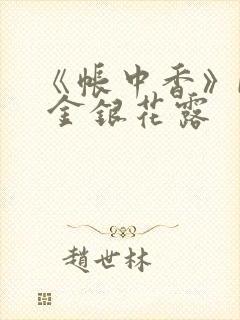 《帳中香》
金銀花露
趙世林